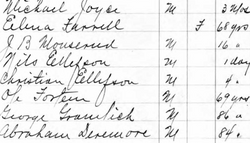 Michael Joyce M 3 Mos
Edena Farrell F 68 yrs
J B Monserud M 16 "
Nils Ellefson M 1 day
Christian Ellefson M 4 "
Ole Fortem M 69 yrs
George Gramlich M 86 "
Abraham Deremore M 84 "